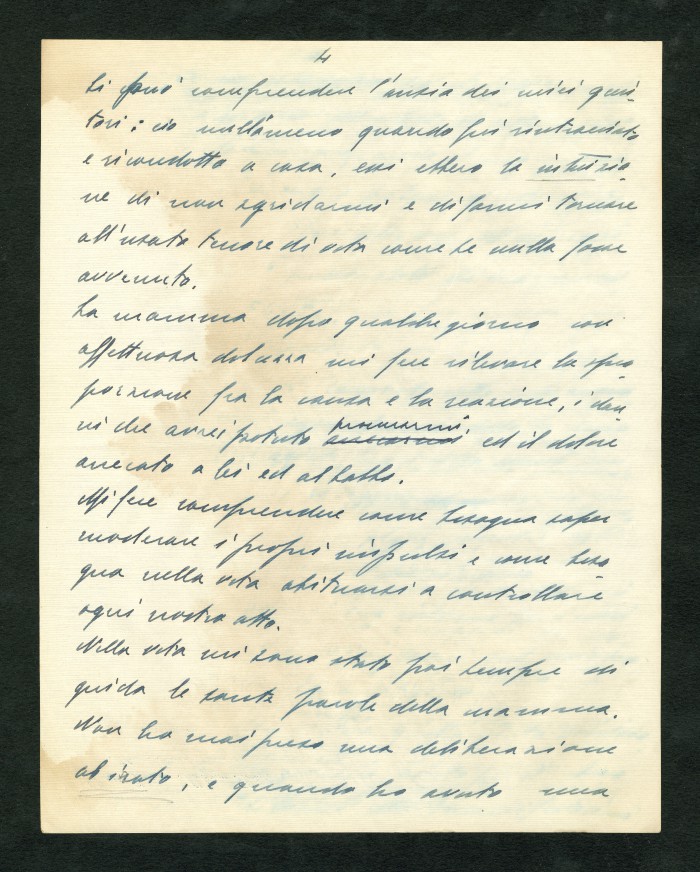 4
Si può comprendere l'ansia dei miei geni-
tori; ciò nullameno quando fui rintracciato
e ricondotto a casa, essi ebbero la intuizio-
ne di non sgridarmi e di farmi tornare
all'usato tenore di vita come se nulla fosse
avvenuto.
La mamma dopo qualche giorno con
affettuosa dolcezza mi fece rilevare la spro
porzione fra la causa e la reazione, i dan-
ni che avrei potuto procurarmi ed il dolore
arrecato a lei ed al babbo.
Mi fece comprendere come bisogna saper
moderare i propri impulsi e come biso
gna nella vita abituarsi a controllare
ogni nostro atto.
Nella vita mi sono state poi sempre di
guida le sante parole della mamma.
Non ho mai preso una deliberazione
ab irato, e quando ho avuto una